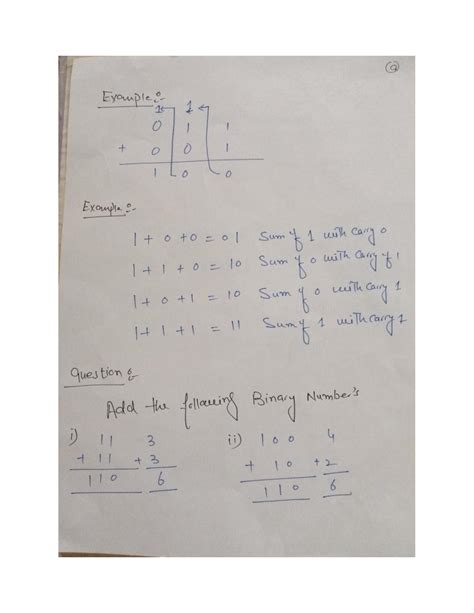 9
Example:-
1 1
0 1 1
+ 0 0 1
1 0 0
Example:-
1 + 0 + 0 = 01 Sum of 1 with carry 0
1 + 1 + 0 = 10 Sum of 0 with carry of 1
1 + 0 + 1 = 10 Sum of 0 with carry 1
1 + 1 + 1 = 11 Sum of 1 with carry 1
Question:-
Add the following Binary Number's
i) 11 3 ii) 100 4
+ 11 + 3 + 10 + 2
110 6 110 6